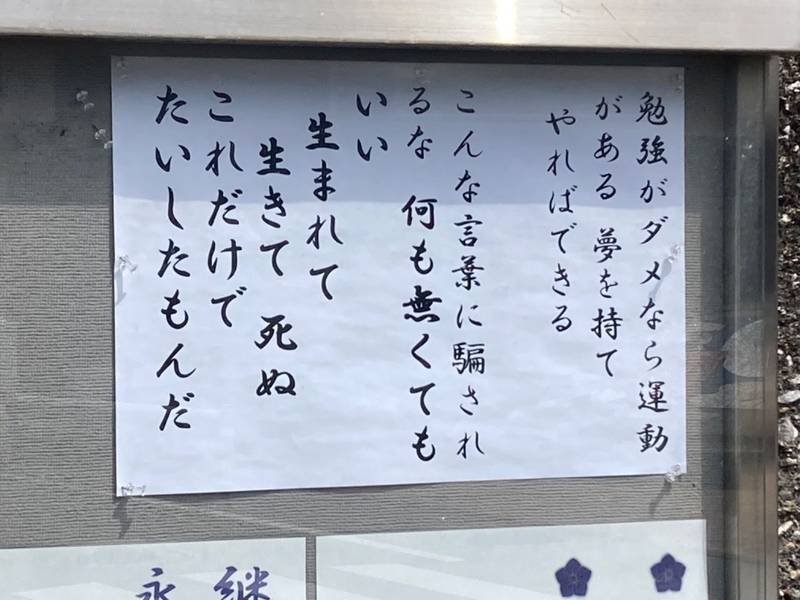 勉強がダメなら運動
がある 夢を持て
やればできる
こんな言葉に騙され
るな 何も無くても
いい
生まれて
生きて 死ぬ
これだけで
たいしたもんだ
永 継